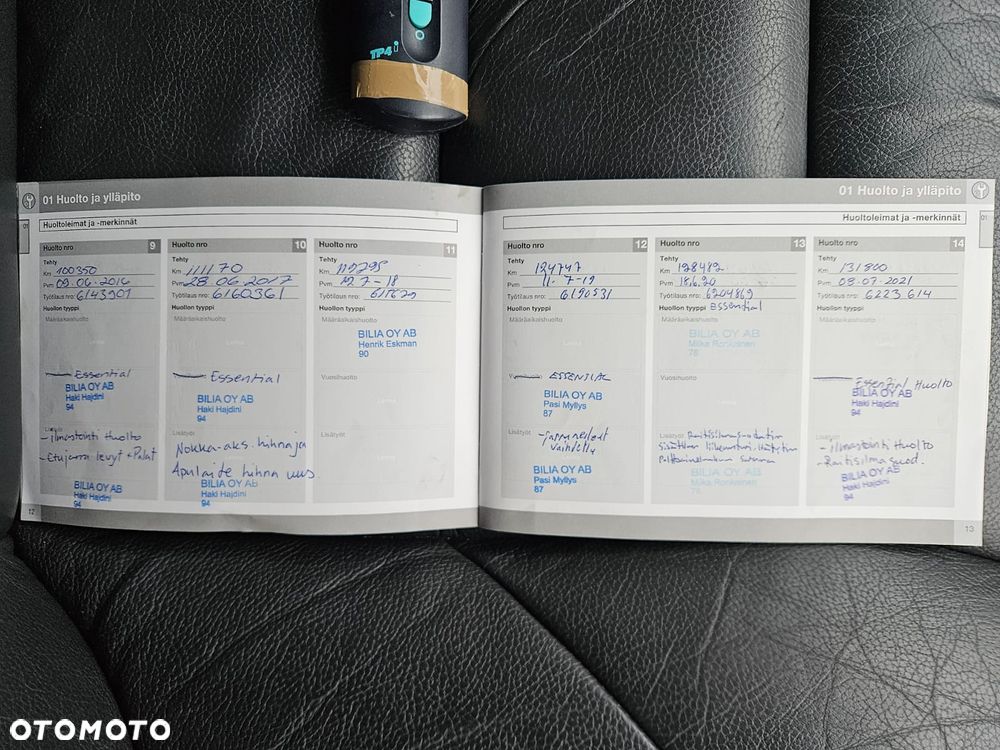 TP4i
01 Huolto ja ylläpito
Huoltoleimat ja -merkinnät
Huolto nro 9
Tehty
Km 100350
Pvm 09.06.2016
Työtilaus nro: 6143901
Huollon tyyppi
Määräaikaishuolto
Essential
BILIA OY AB
Haki Hajdini
94
Lisätyöt
-ilmastointi Huolto
-Etujarru levyt + Palat
BILIA OY AB
Haki Hajdini
94
12
Huolto nro 10
Tehty
Km 111170
Pvm 28.06.2017
Työtilaus nro: 6160361
Huollon tyyppi
Määräaikaishuolto
Essential
BILIA OY AB
Haki Hajdini
94
Lisätyöt
Nokka-aks. hihna ja
Apulaite hihna uus.
BILIA OY AB
Haki Hajdini
94
Huolto nro 11
Tehty
Km 119295
Pvm 12.7-18
Työtilaus nro:
Huollon tyyppi
Määräaikaishuolto
BILIA OY AB
Henrik Eskman
90
Vuosihuolto
Lisätyöt
01 Huolto ja ylläpito
Huoltoleimat ja -merkinnät
Huolto nro 12
Tehty
Km 124747
Pvm 11.7-19
Työtilaus nro: 6190531
Huollon tyyppi
Määräaikaishuolto
ESSENTIAL
BILIA OY AB
Pasi Myllys
87
Lisätyöt
-jarrunesteet
vaihdettu
BILIA OY AB
Pasi Myllys
87
Huolto nro 13
Tehty
Km 128482
Pvm 18.6.20
Työtilaus nro: 6204869
Huollon tyyppi Essential
Määräaikaishuolto
BILIA OY AB
Miika Ronkainen
78
Vuosihuolto
Lisätyöt
BILIA OY AB
Miika Ronkainen
78
Huolto nro 14
Tehty
Km 131800
Pvm 08.07.2021
Työtilaus nro: 6223614
Huollon tyyppi
Määräaikaishuolto
Essential Huolto
BILIA OY AB
Haki Hajdini
94
Lisätyöt
-Ilmastointi Huolto
-Raitisilma suod.
BILIA OY AB
Haki Hajdini
94
13
OTOMOTO